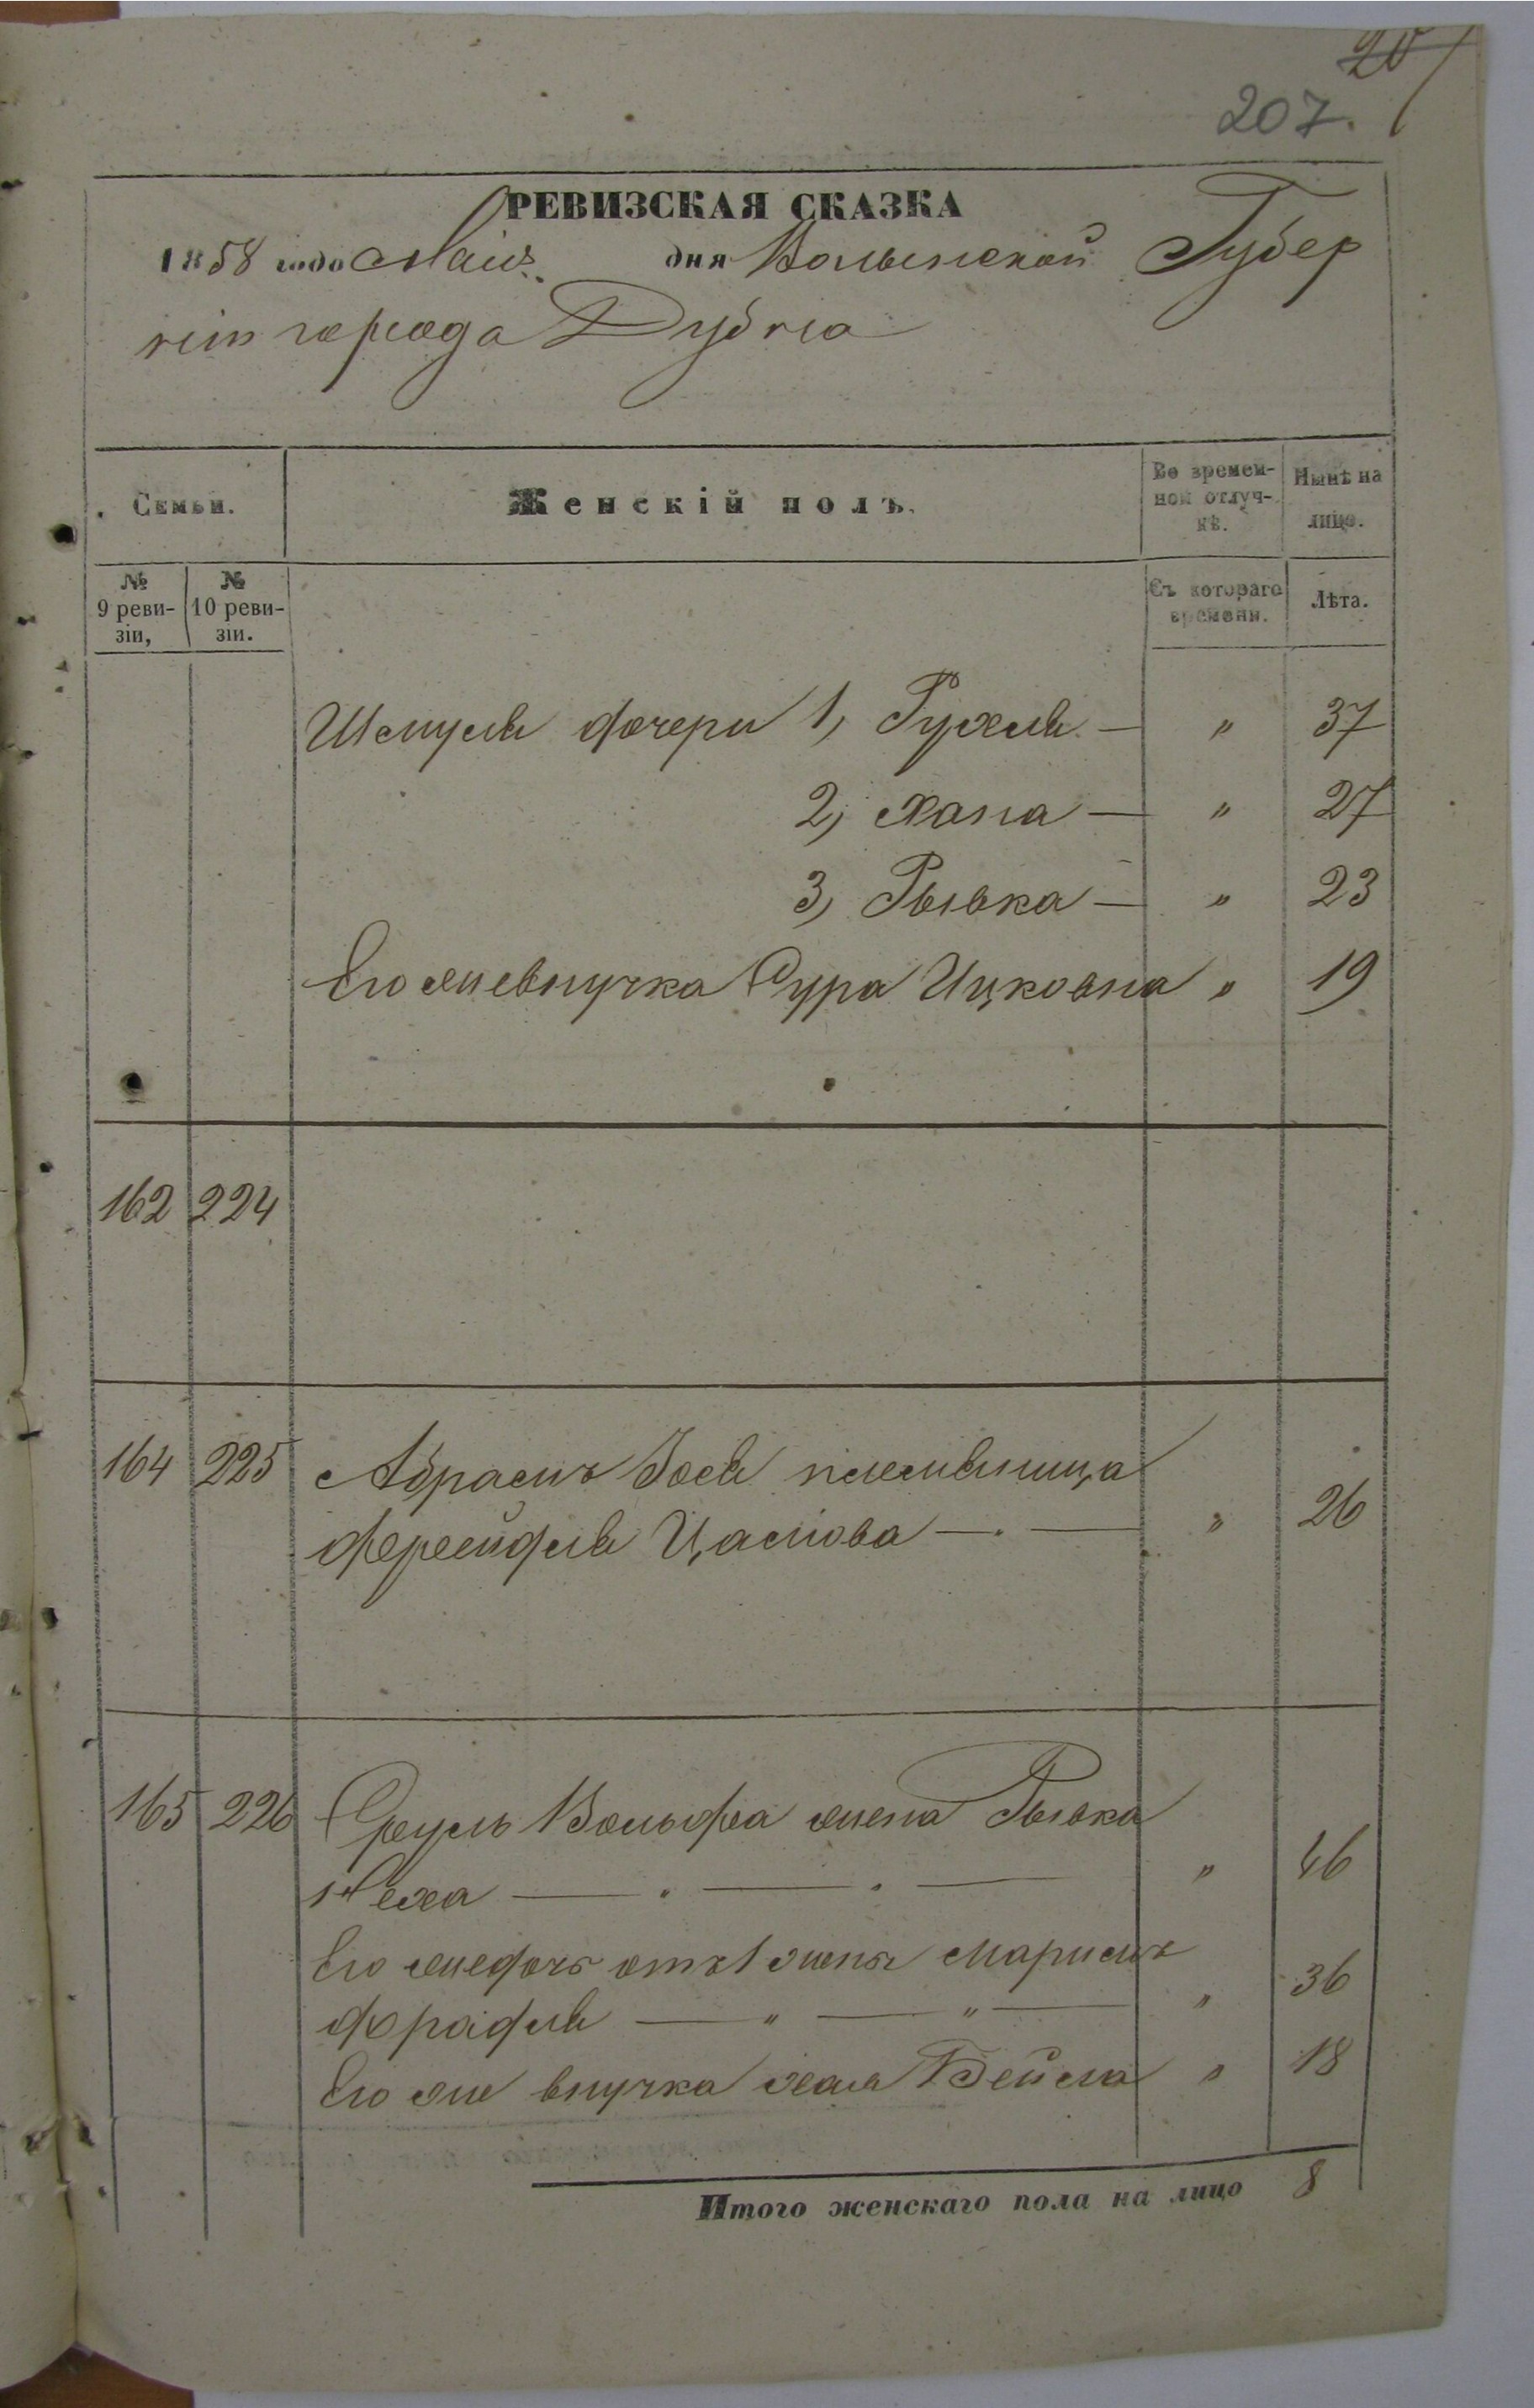 207
207.
РЕВИЗСКАЯ СКАЗКА
1858 года Маія дня Волынской Губер
ніи города Дубна
Семьи.
Женскій полъ.
Во времен-
ной отлуч-
кѣ.
Нынѣ на
лицо.
№
9 реви-
зіи,
№
10 реви-
зіи.
Съ котораго
времени.
Лѣта.
Шмуля дочери 1, Рухля — „ 37
2, Хана — „ 27
3, Рывка — „ 23
Его же внучка Сура Ицковна „ 19
162 224
164 225 Абрамъ Іося племянница
Фрейдля Цаліова — . — „ 26
165 226 Сруль Вольфа жена Рывка
Неха — . — . — „ 46
Его же дочь отъ 1 жены Маріимъ
Фрадля — „ — „ — „ 36
Его же внучка Хая Бейла „ 18
Итого женскаго пола на лицо 8